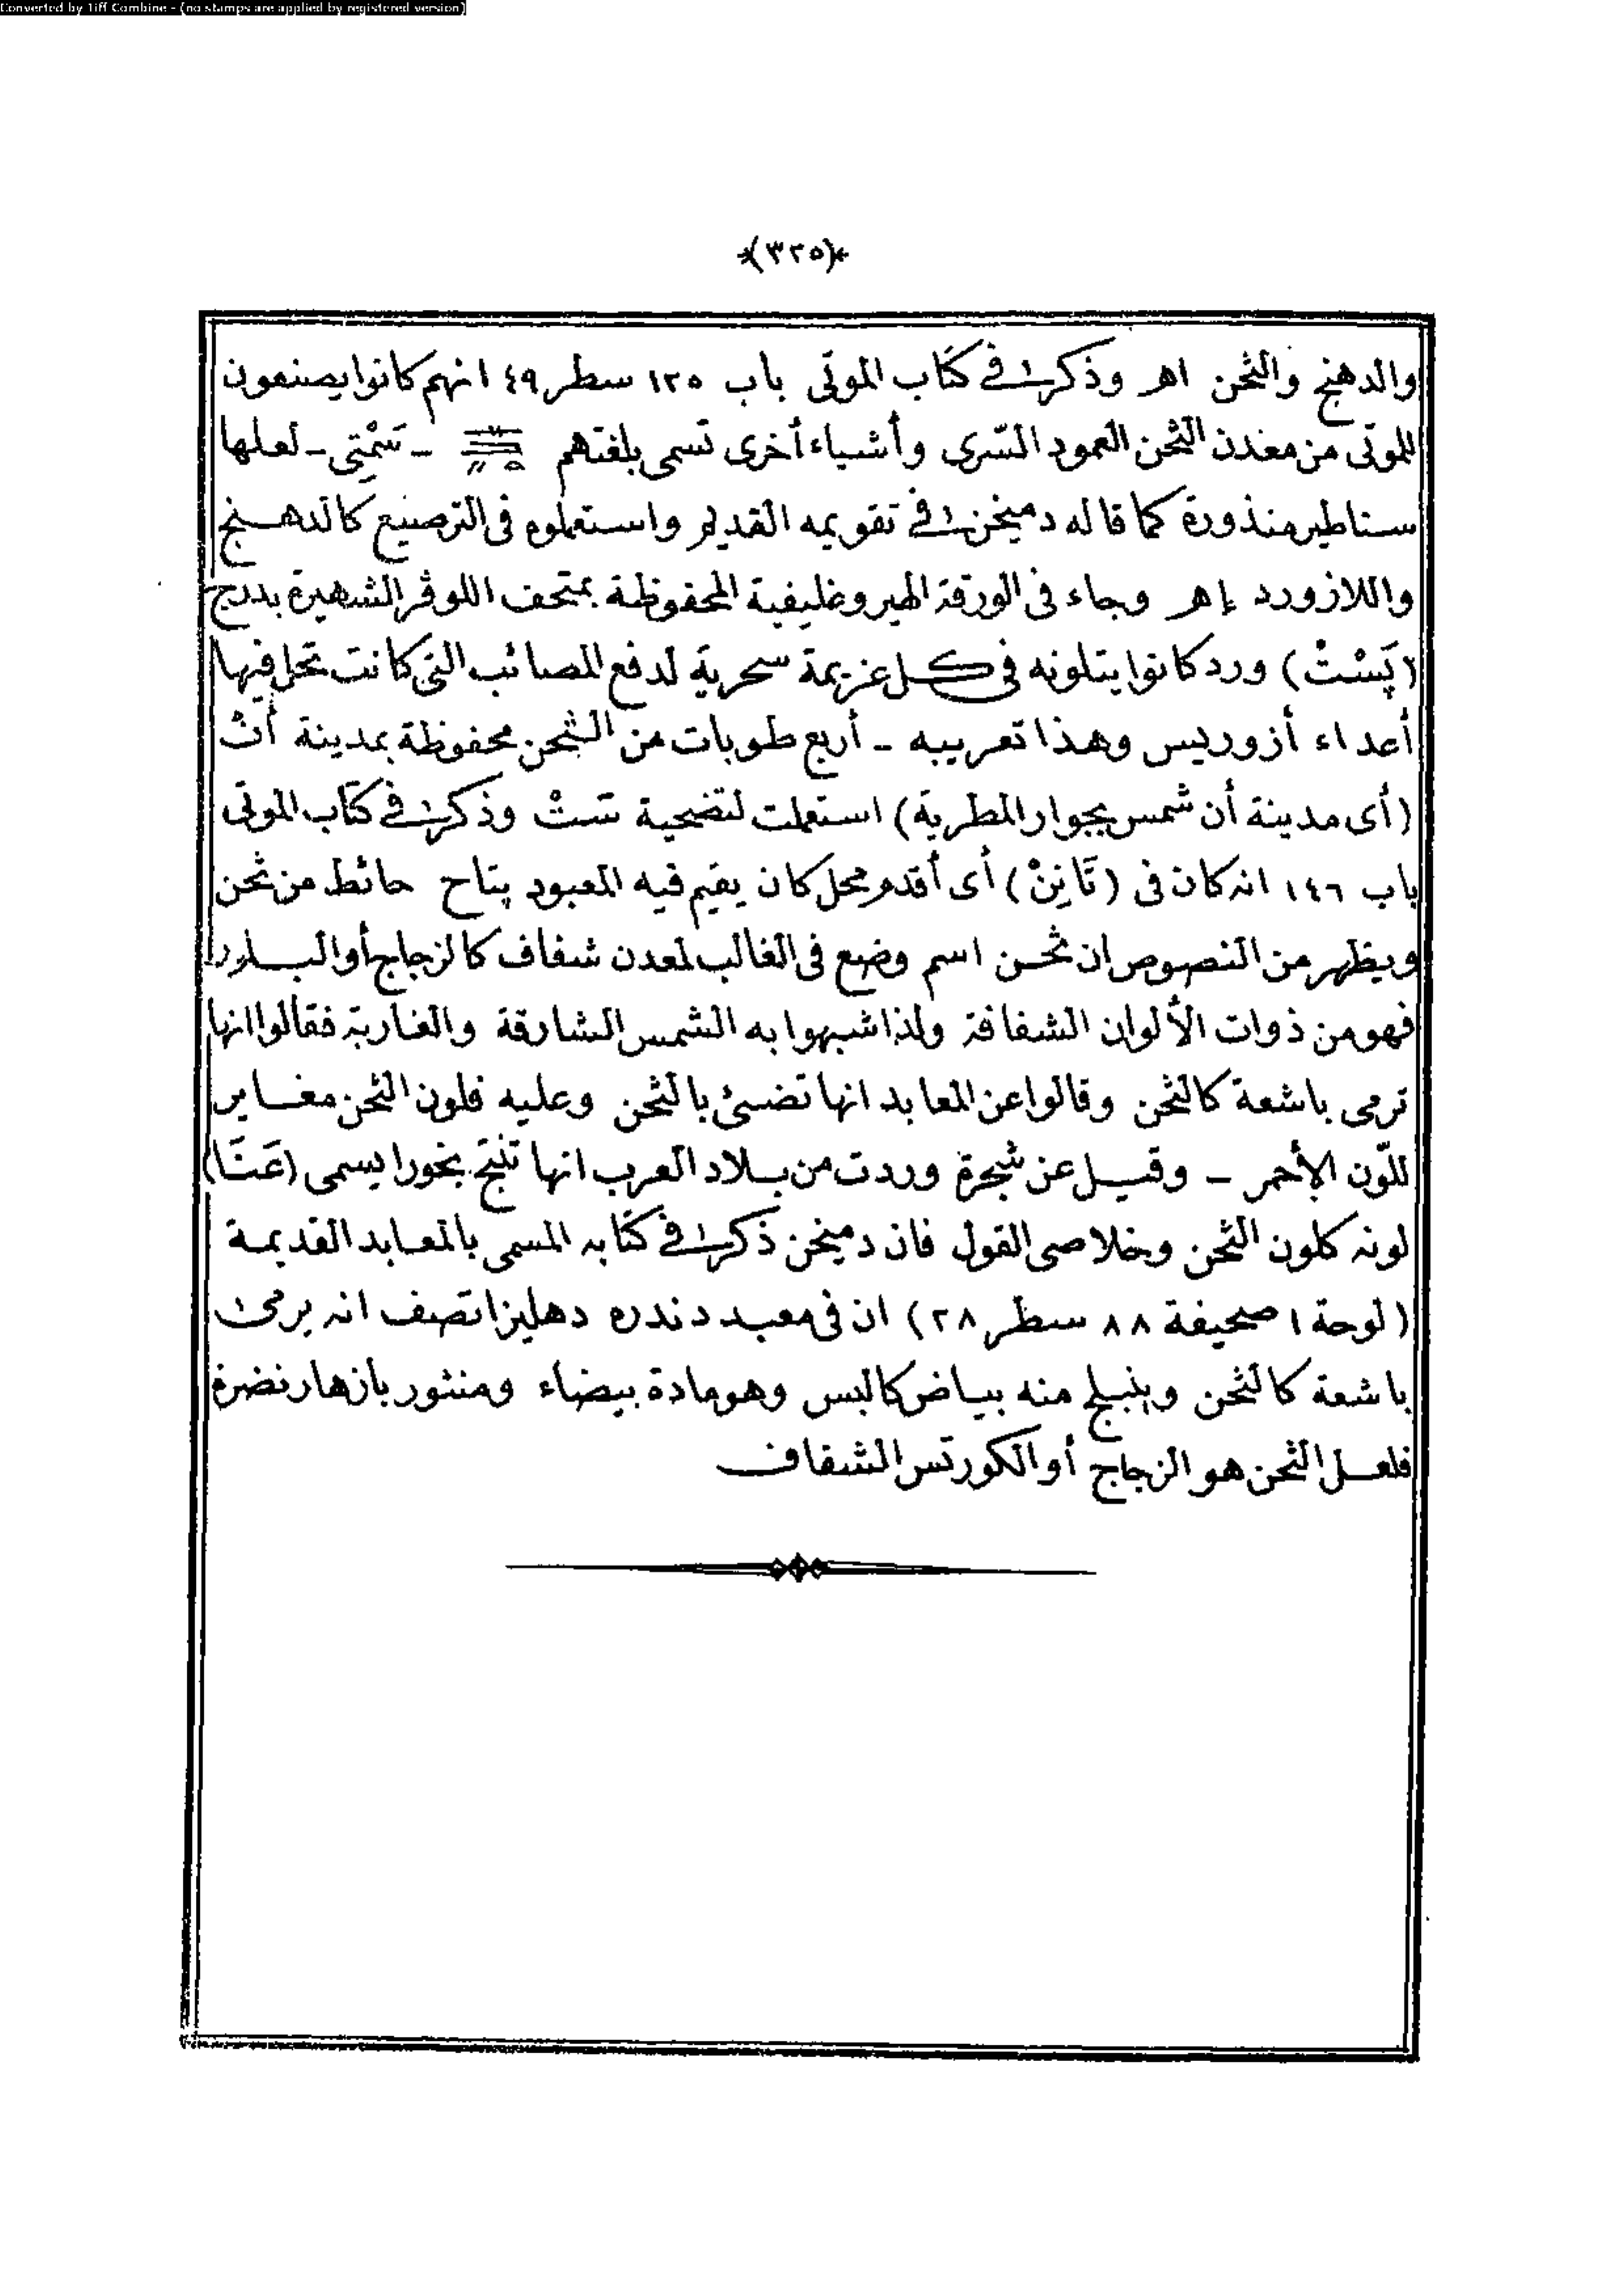 Converted by Tiff Combine - (no stamps are applied by registered version)
(٣٢٥)
والدهنج والثحن اهـ وذكر في كتاب الموتى باب ١٢٥ سطر ٤٩ انهم كانوا يصنعون
للموتى من معدن الثحن العمود السّرى وأشياء أخرى تسمى بلغتهم - سَمْتِى - لعلها
ستاطير منذورة كما قاله دميخن في تقويمه القديم واستعملوه فى الترصيع كالدهنج
واللازورد إهـ وجاء فى الورقة الهيروغليفية المحفوظة بمتحف اللوڤر الشهيرة بدرج
(پَسْتْ) ورد كانوا يتلونه فى كل عزيمة سحرية لدفع المصائب التى كانت تحل فيها
أعداء أزوريس وهذا تعريبه - أربع طوبات من الثحن محفوظة بمدينة أنْ
(أى مدينة أن شمس بجوار المطرية) استعملت لتضحية سَتْ وذكر في كتاب الموتى
باب ١٤٦ انه كان فى (تَانِنْ) أى أقدم محل كان يقيم فيه المعبود پتاح حائط من ثحن
ويظهر من النصوص ان ثحن اسم وضع فى الغالب لمعدن شفاف كالزجاج أو البلور
فهو من ذوات الألوان الشفافة ولذا شبهوا به الشمس الشارقة والغاربة فقالوا انها
ترمى باشعة كالثحن وقالوا عن المعابد انها تضىئ بالثحن وعليه فلون الثحن مغاير
للّون الأحمر - وقيل عن شجرة وردت من بلاد العرب انها تنتج بخورا يسمى (عَنْتَا)
لونه كلون الثحن وخلاصى القول فان دميخن ذكر في كتابه المسمى بالمعابد القديمة
(لوحة ١ صحيفة ٨٨ سطر ٢٨) ان فى معبد دندره دهليزا تصف انه يرمى
باشعة كالثحن وينبلج منه بياض كالبس وهو مادة بيضاء ومنثور بازهار نضرة
فلعل الثحن هو الزجاج أو الكورتس الشفاف